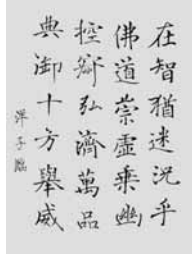 在智猶迷況乎
佛道崇虛乘幽
控寂弘濟萬品
典御十方舉威
子臨